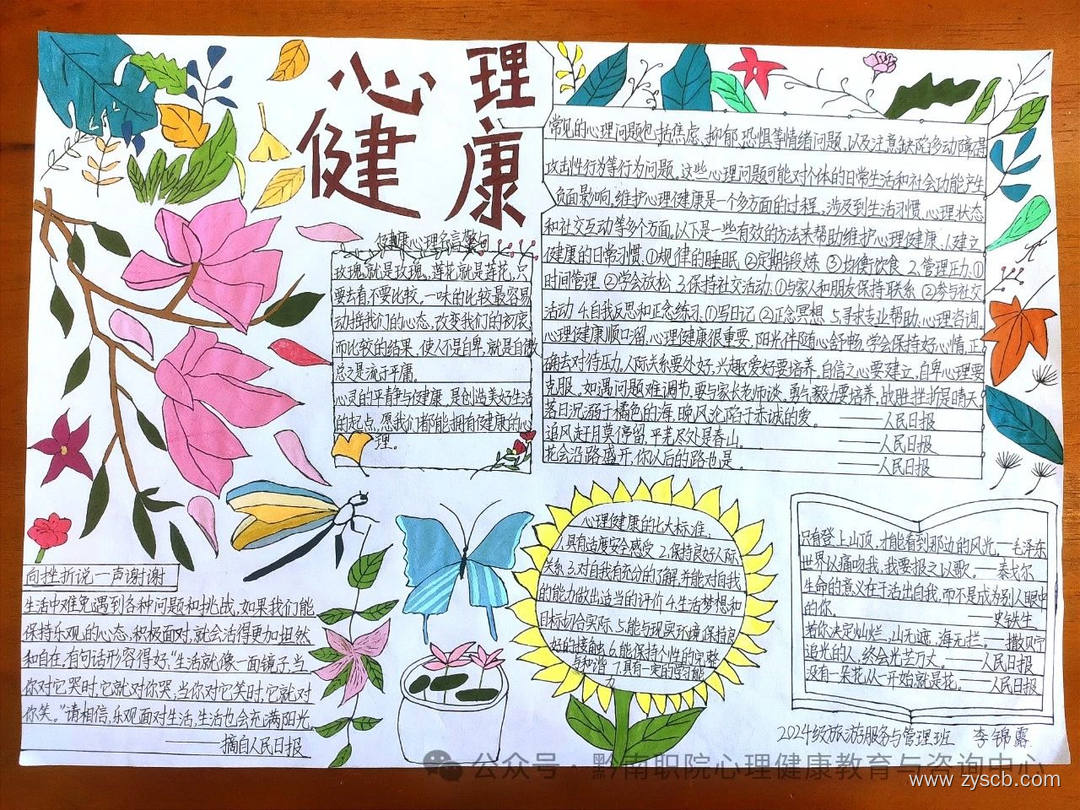 心理
健康
健康心理名言警句
玫瑰就是玫瑰,莲花就是莲花,只
要去看,不要比较。一味的比较最容易
动摇我们的心态,改变我们的初衷,
而比较的结果,使人不是自卑,就是自傲
总之是流于平庸。
心灵的平静与健康,是创造美好生活
的起点,愿我们都能拥有健康的心
理。
常见的心理问题包括焦虑、抑郁、恐惧等情绪问题,以及注意缺陷多动障碍
攻击性行为等行为问题。这些心理问题可能对个体的日常生活和社会功能产生
负面影响,维护心理健康是一个多方面的过程。涉及到生活习惯、心理状态
和社交互动等多个方面,以下是一些有效的方法来帮助维护心理健康、1.建立
健康的日常习惯、①规律的睡眠 ②定期锻炼 ③均衡饮食 2、管理压力、①
时间管理 ②学会放松 3.保持社交活动、①与家人和朋友保持联系 ②参与社交
活动 4.自我反思和正念练习、①写日记 ②正念冥想 5.寻求专业帮助、心理咨询、
心理健康顺口溜、心理健康很重要,阳光伴随心舒畅,学会保持好心情,正
确去对待压力,人际关系要处好,兴趣爱好要培养,自信之心要建立,自卑心理要
克服。如遇问题难调节,要与家长老师谈。勇气毅力要培养,战胜挫折是晴天。
落日沉溺于橘色的海,晚风沦陷于赤诚的爱。——人民日报
追风赶月莫停留,平芜尽处是春山。——人民日报
花会沿路盛开,你以后的路也是。——人民日报
向挫折说一声谢谢
生活中难免遇到各种问题和挑战,如果我们能
保持乐观的心态,积极面对,就会活得更加坦然
和自在,有句话形容得好,“生活就像一面镜子,当
你对它哭时,它就对你哭,当你对它笑时,它就对
你笑。”请相信,乐观面对生活,生活也会充满阳光。
——摘自人民日报
心理健康的七大标准、
1.具有适度安全感受 2.保持良好人际
关系 3.对自我有充分的了解,并能对自我
的能力做出适当的评价 4.生活梦想和
目标切合实际 5.能与现实环境保持良
好的接触 6.能保持个性的完整
与和谐 7.具有一定的学习能
力
只有登上山顶,才能看到那边的风光。—毛泽东
世界以痛吻我,我要报之以歌。—泰戈尔
生命的意义在于活出自我,而不是成为别人眼中
的你。——史铁生
若你决定灿烂,山无遮,海无拦。—撒贝宁
追光的人,终会光芒万丈。——人民日报
没有一朵花,从一开始就是花。——人民日报
2024级旅游服务与管理班 李锦露
公众号·黔南职院心理健康教育与咨询中心
www.zyscb.com